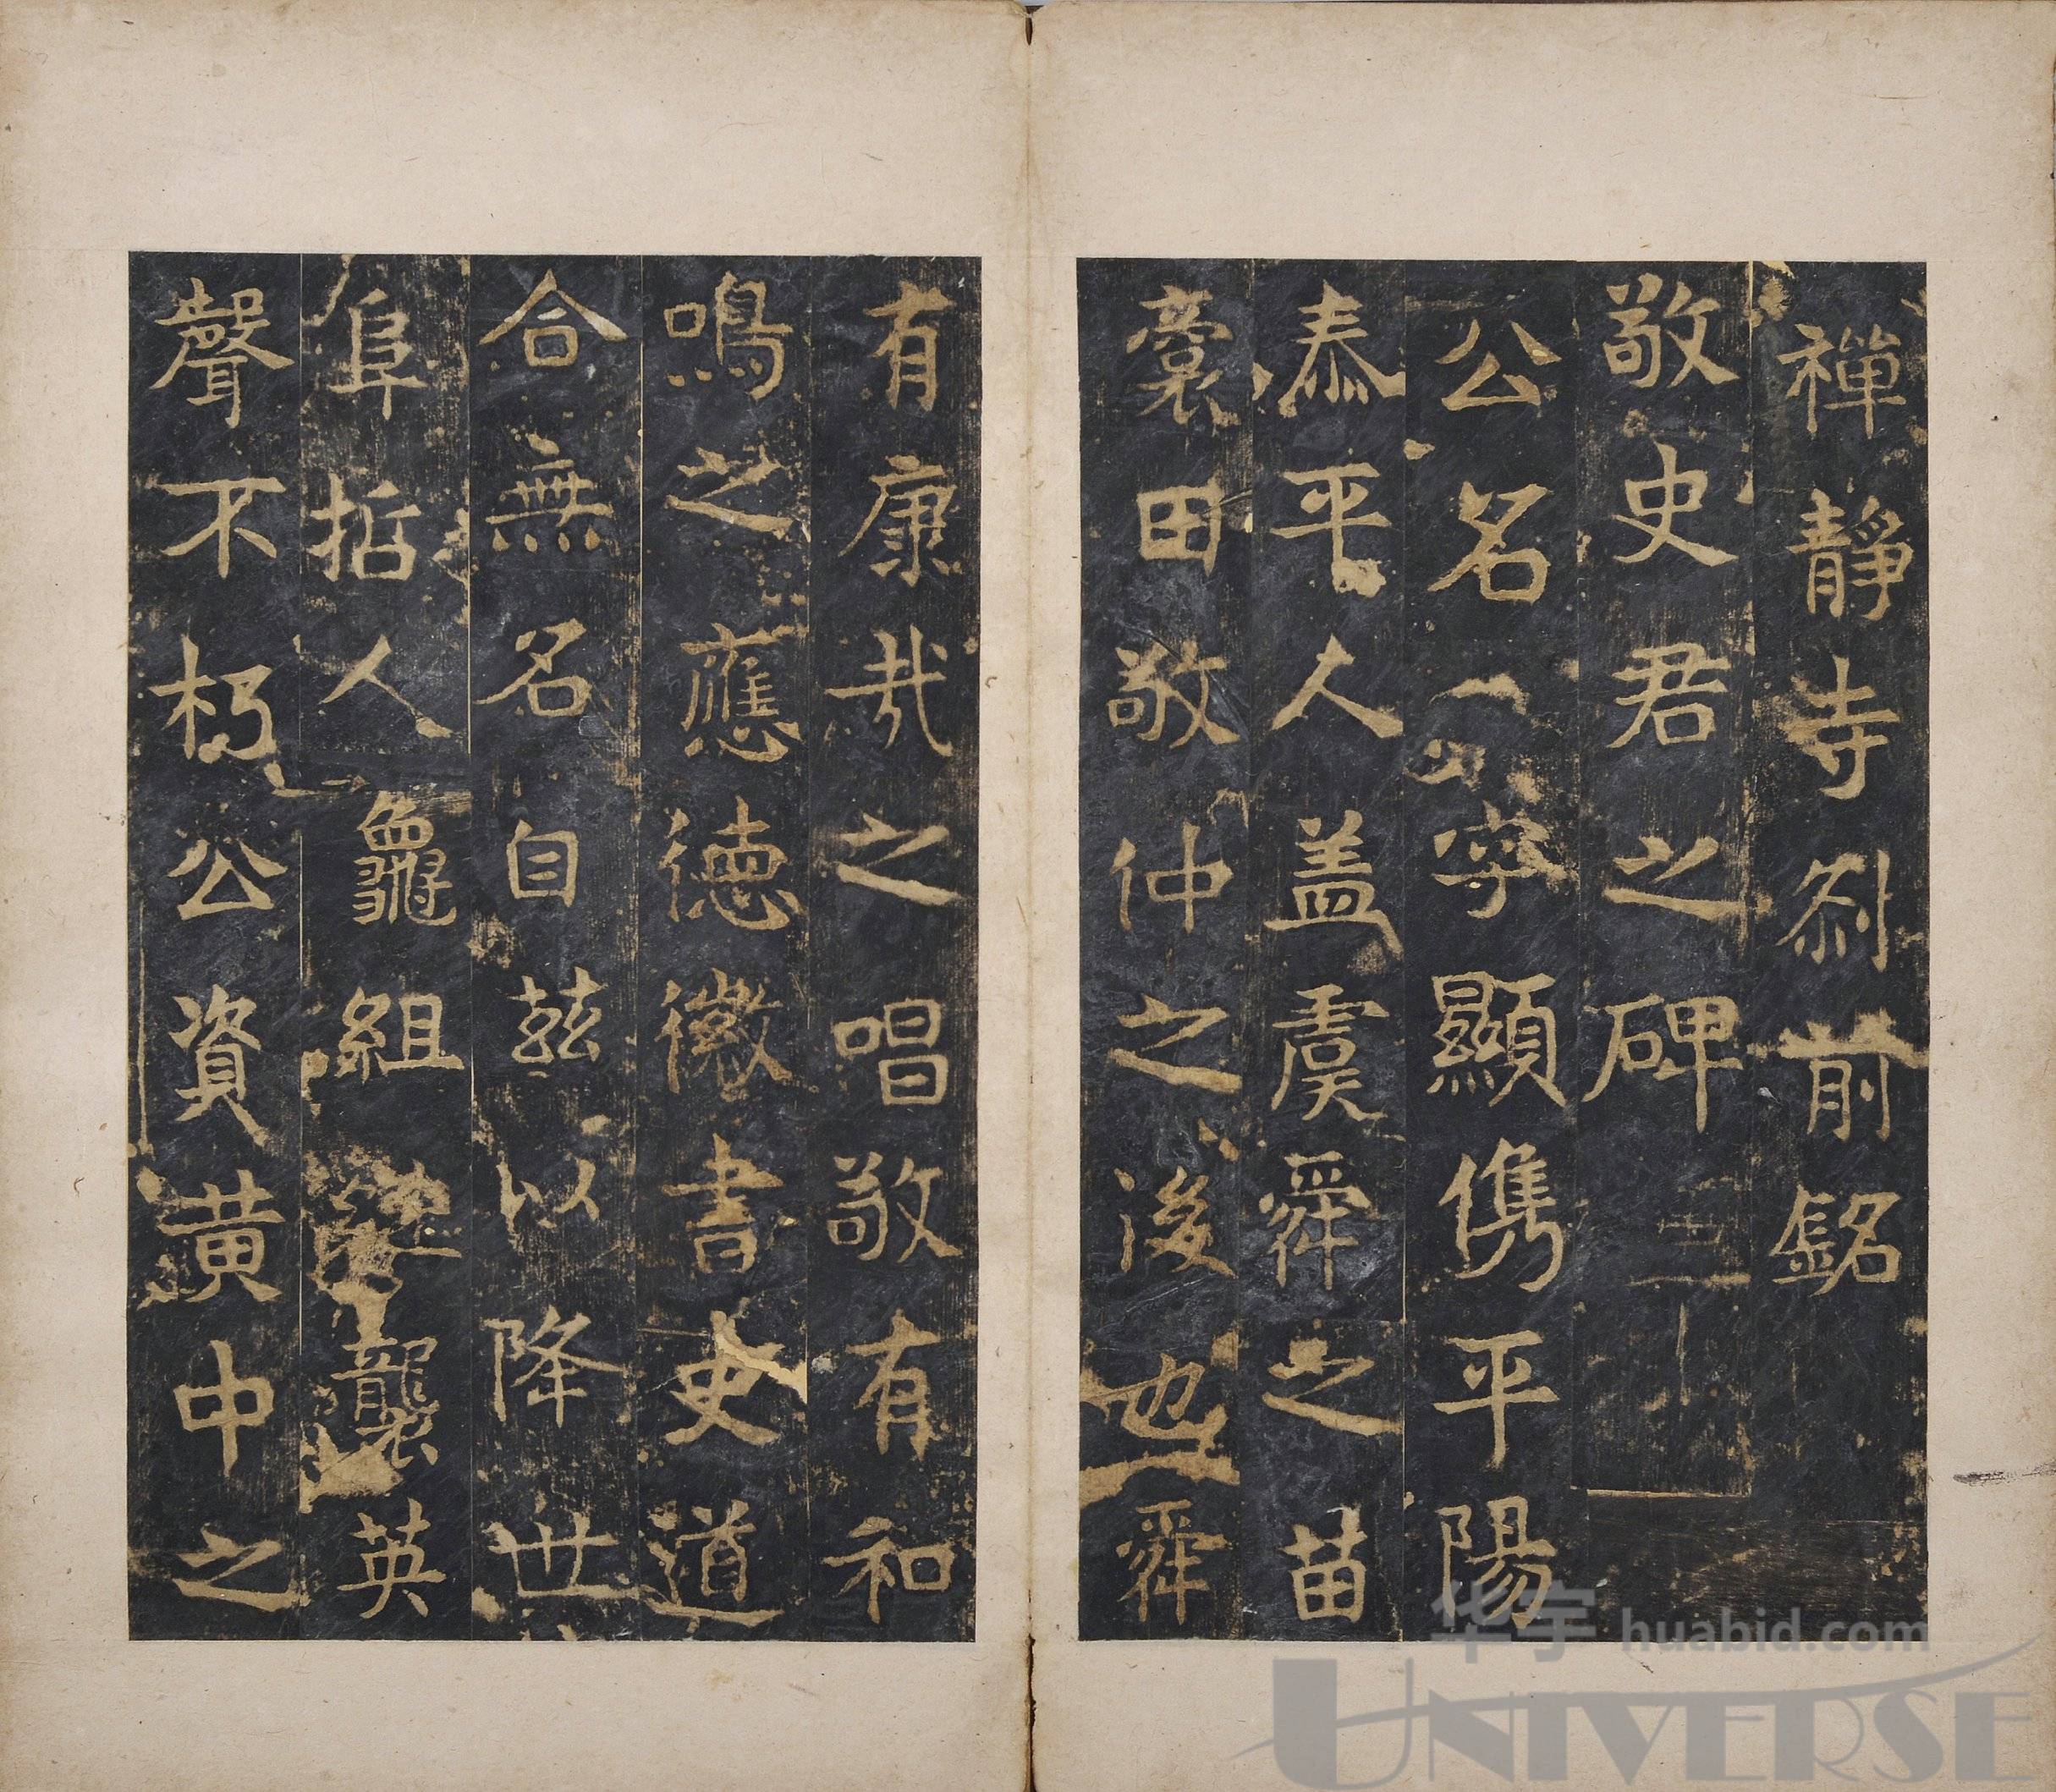 禪静寺刹前銘
敬史君之碑
公名 字顯儁平陽
泰平人盖虞舜之苗
裔田敬仲之後也舜
有康哉之唱敬有和
鳴之應徳徽書史道
合無名自兹以降世
阜哲人龜組 襲英
聲不朽公資黄中之
华宇 huabid.com
UNIVERSE